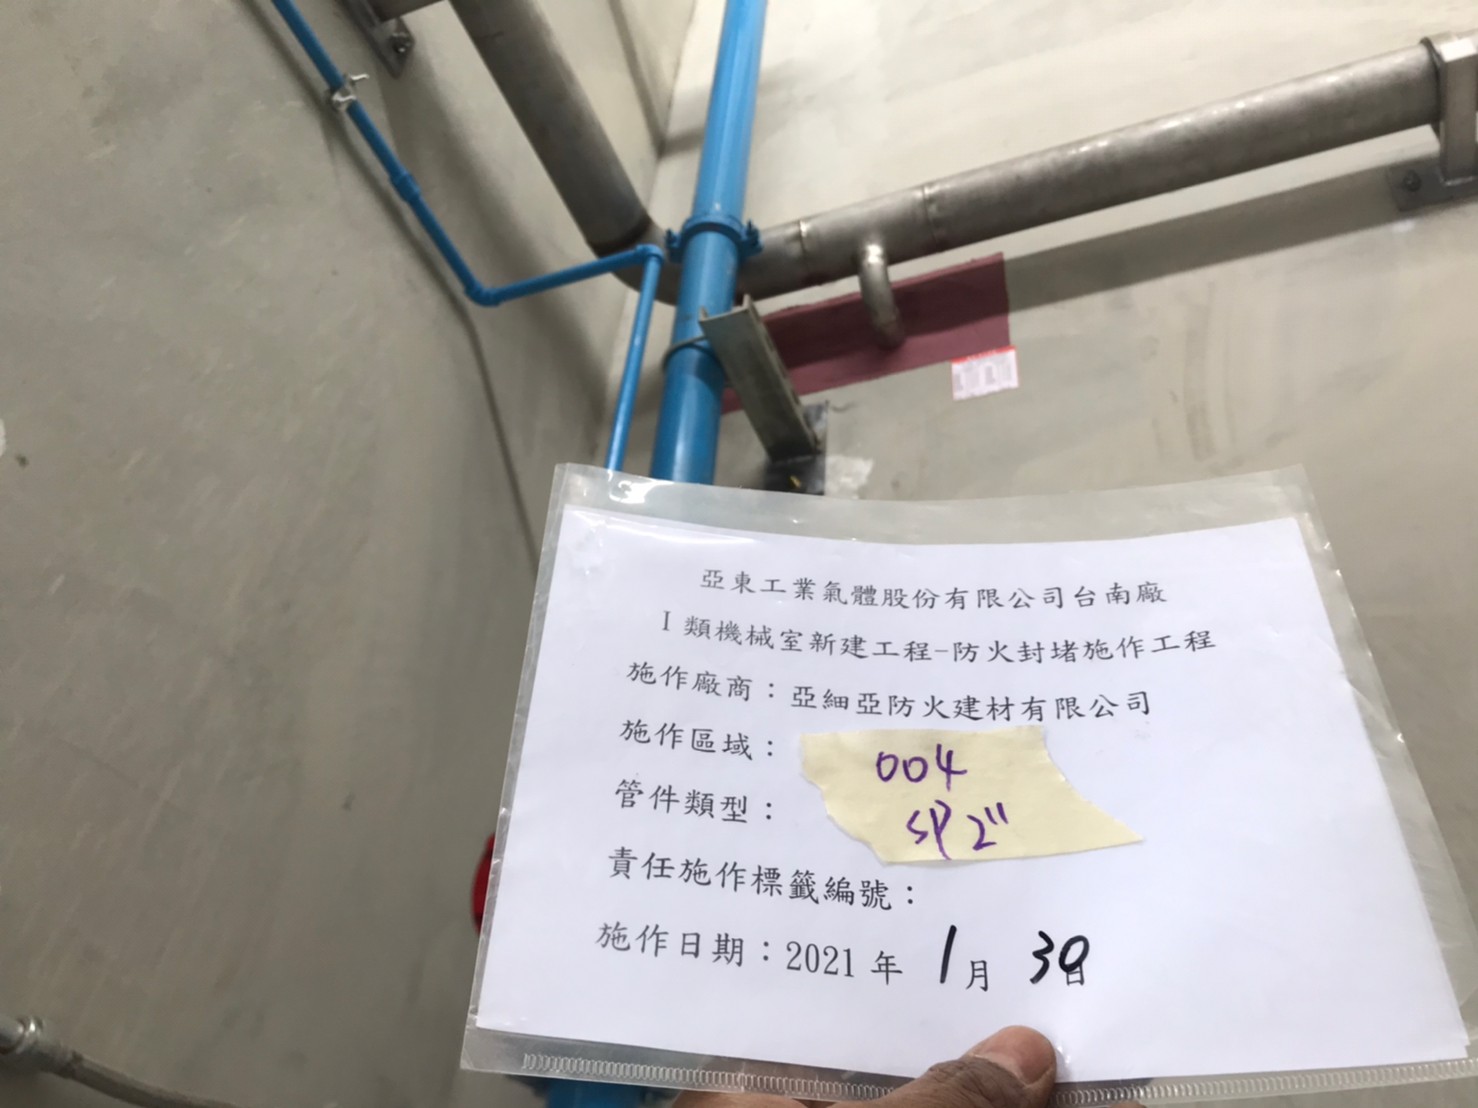 亞東工業氣體股份有限公司台南廠
I 類機械室新建工程-防火封堵施作工程
施作廠商：亞細亞防火建材有限公司
施作區域：004
管件類型：SP 2"
責任施作標籤編號：
施作日期：2021 年 1 月 30 日